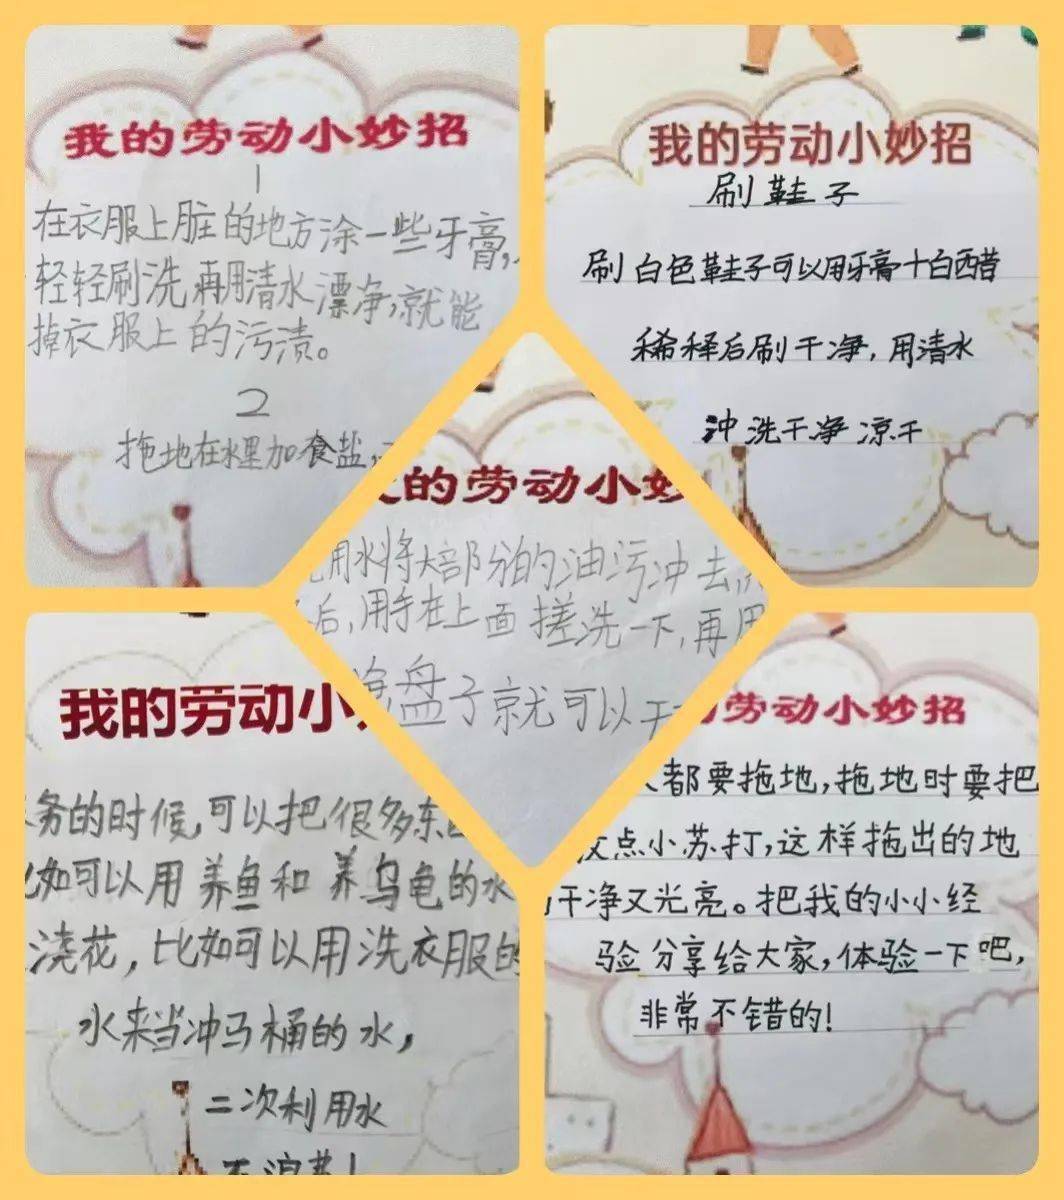 我的劳动小妙招
1
在衣服上脏的地方涂一些牙膏,
轻轻刷洗,再用清水漂净,就能
掉衣服上的污渍。
2
拖地在水里加食盐,
我的劳动小妙招
刷鞋子
刷白色鞋子可以用牙膏+白醋
稀释后刷干净,用清水
冲洗干净凉干
的劳动小妙
用水将大部分的油污冲去,
后,用手在上面搓洗一下,再用
盘子就可以
我的劳动小
务的时候,可以把很多东
如可以用养鱼和养乌龟的水
浇花,比如可以用洗衣服的
水来当冲马桶的水,
二次利用水
不浪费!
劳动小妙招
都要拖地,拖地时要把
点小苏打,这样拖出的地
干净又光亮。把我的小小经
验分享给大家,体验一下吧,
非常不错的!